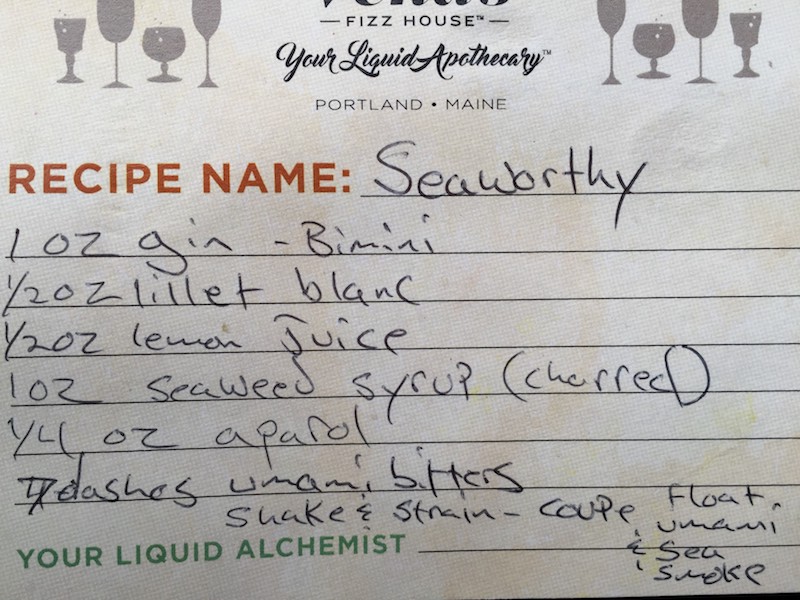 FIZZ HOUSE™
Your Liquid Apothecary™
PORTLAND • MAINE
RECIPE NAME: Seaworthy
1 oz gin - Bimini
1/2 oz lillet blanc
1/2 oz lemon juice
1 oz seaweed syrup (charred)
1/4 oz aparol
dashes umami bitters
shake & strain - coupe, float
umami
& sea
smoke
YOUR LIQUID ALCHEMIST